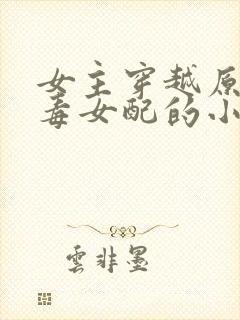 女主穿越原
毒女配的小
雲非墨